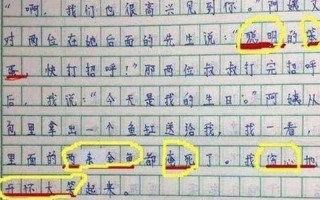 “啊，我们也很高兴见到你。”阿姨又
对两位在她后面的先生说：“聪明的笨
蛋，快打招呼！”那两位叔叔打完招呼
后，我说：“今天是我的生日。”阿姨从
包里拿出一个鱼缸送给我，我一看，
里面的两条金鱼都离死了。我伤心地
开怀大笑起来。